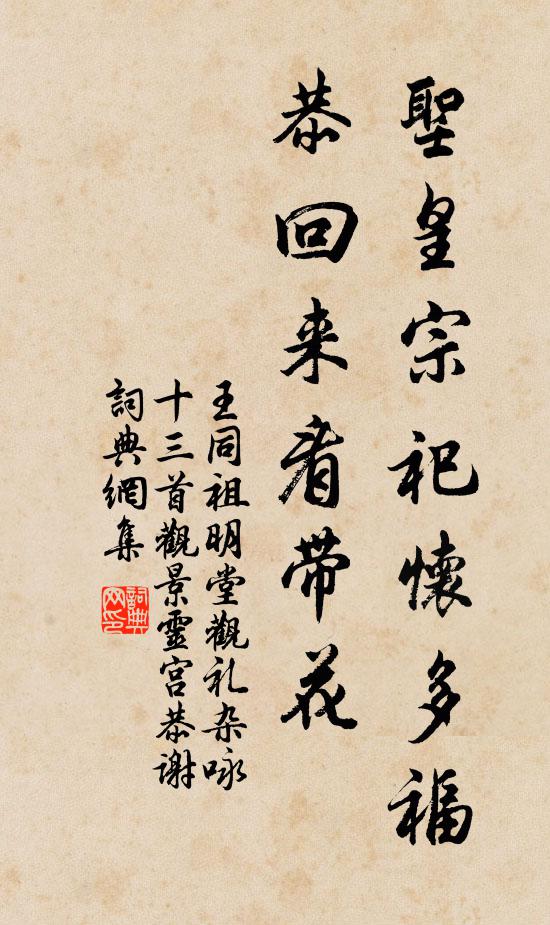 聖皇宗祀懷多福
恭回来看帶花
王同祖明堂觀礼杂咏
十三首觀景靈宫恭谢
詞典網集
詞典網印